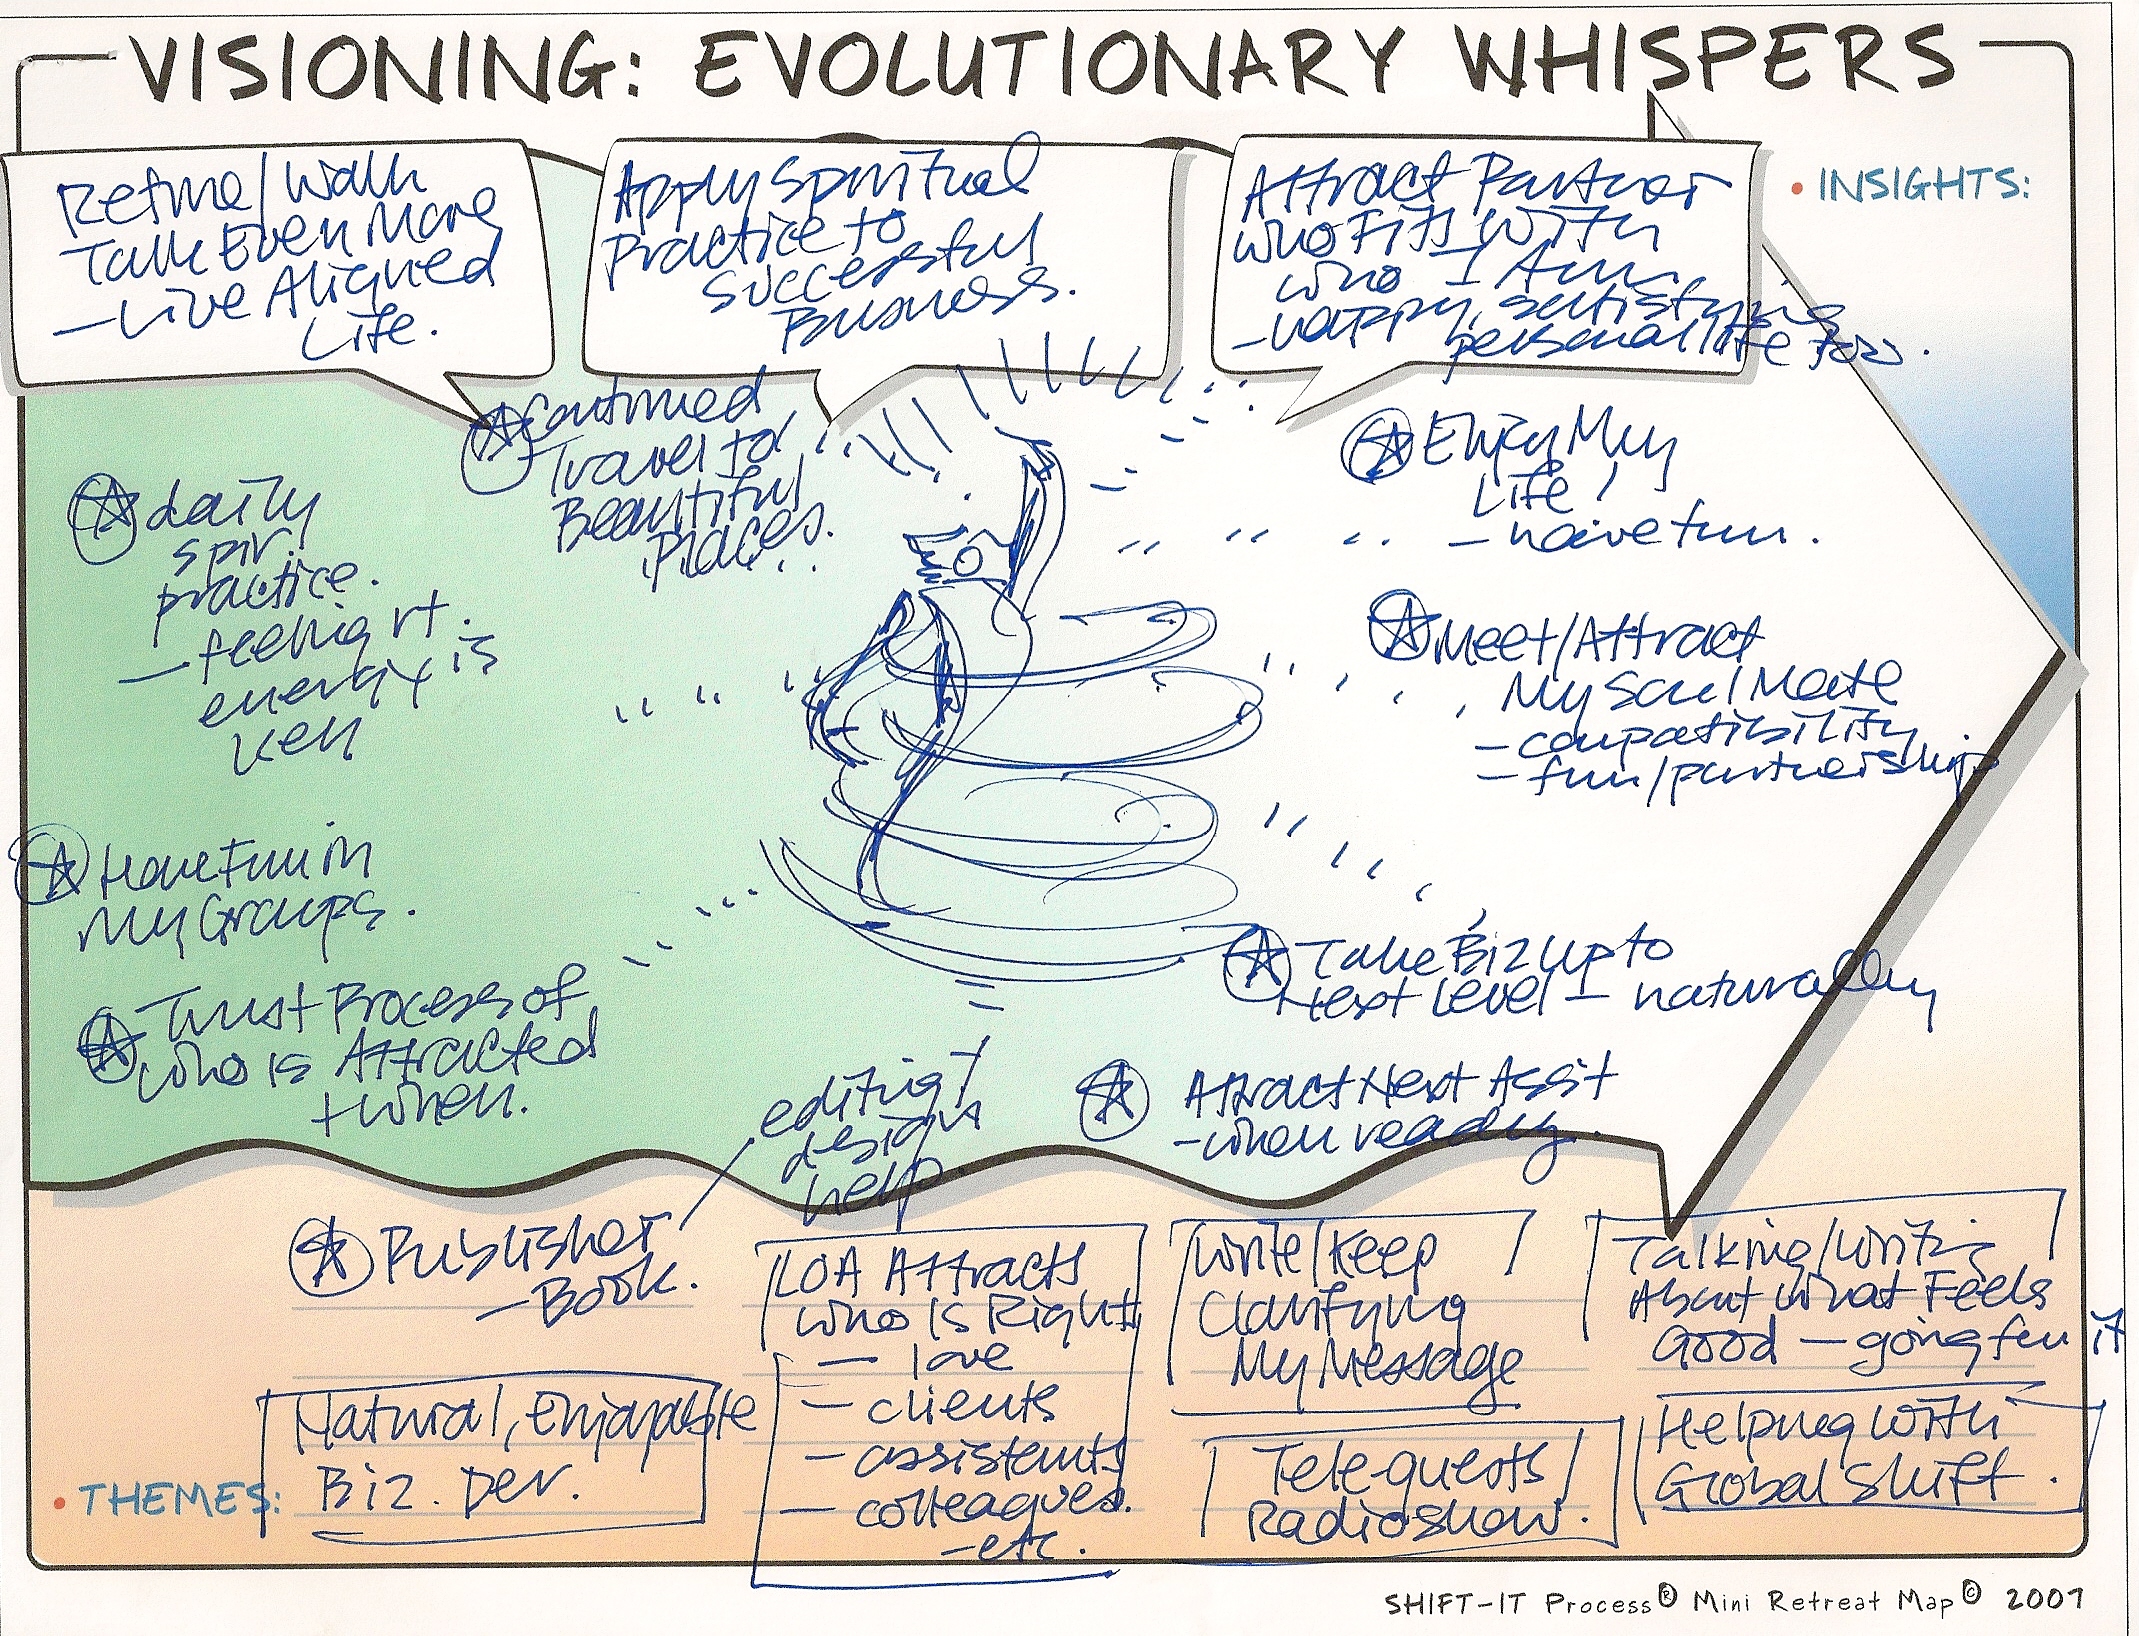 VISIONING: EVOLUTIONARY WHISPERS
Refine/Walk
Talk Even More
- Live Aligned
Life.
Apply Spiritual
Practice to
Successful
Business.
Attract Partner
Who Fits With
Who I Am
- happy, satisfying
personal life too.
• INSIGHTS:
Continued
Travel to
Beautiful
Places.
Enjoy My
Life!
- naive fun.
daily
spir.
practice.
- feeling rt.
energy is
key
Meet/Attract
My Soul Mate
- compatibility
- fun/partnership
Have Fun in
My Groups.
Trust Process of
Who is Attracted
+ When.
Take Biz Up to
Next Level - naturally
Attract Next Assist
- when ready.
editing/
design
help
Publisher
- Book.
LOA Attracts
Who Is Right
- love
- clients
- assistants
- colleagues.
- etc.
Write/Keep
Clarifying
My Message
Talking/Writing
About What Feels
Good - going for it
Natural, Enjoyable
Biz. Dev.
Tele-quests/
Radio show.
Helping With
Global Shift.
• THEMES:
SHIFT-IT Process® Mini Retreat Map© 2007